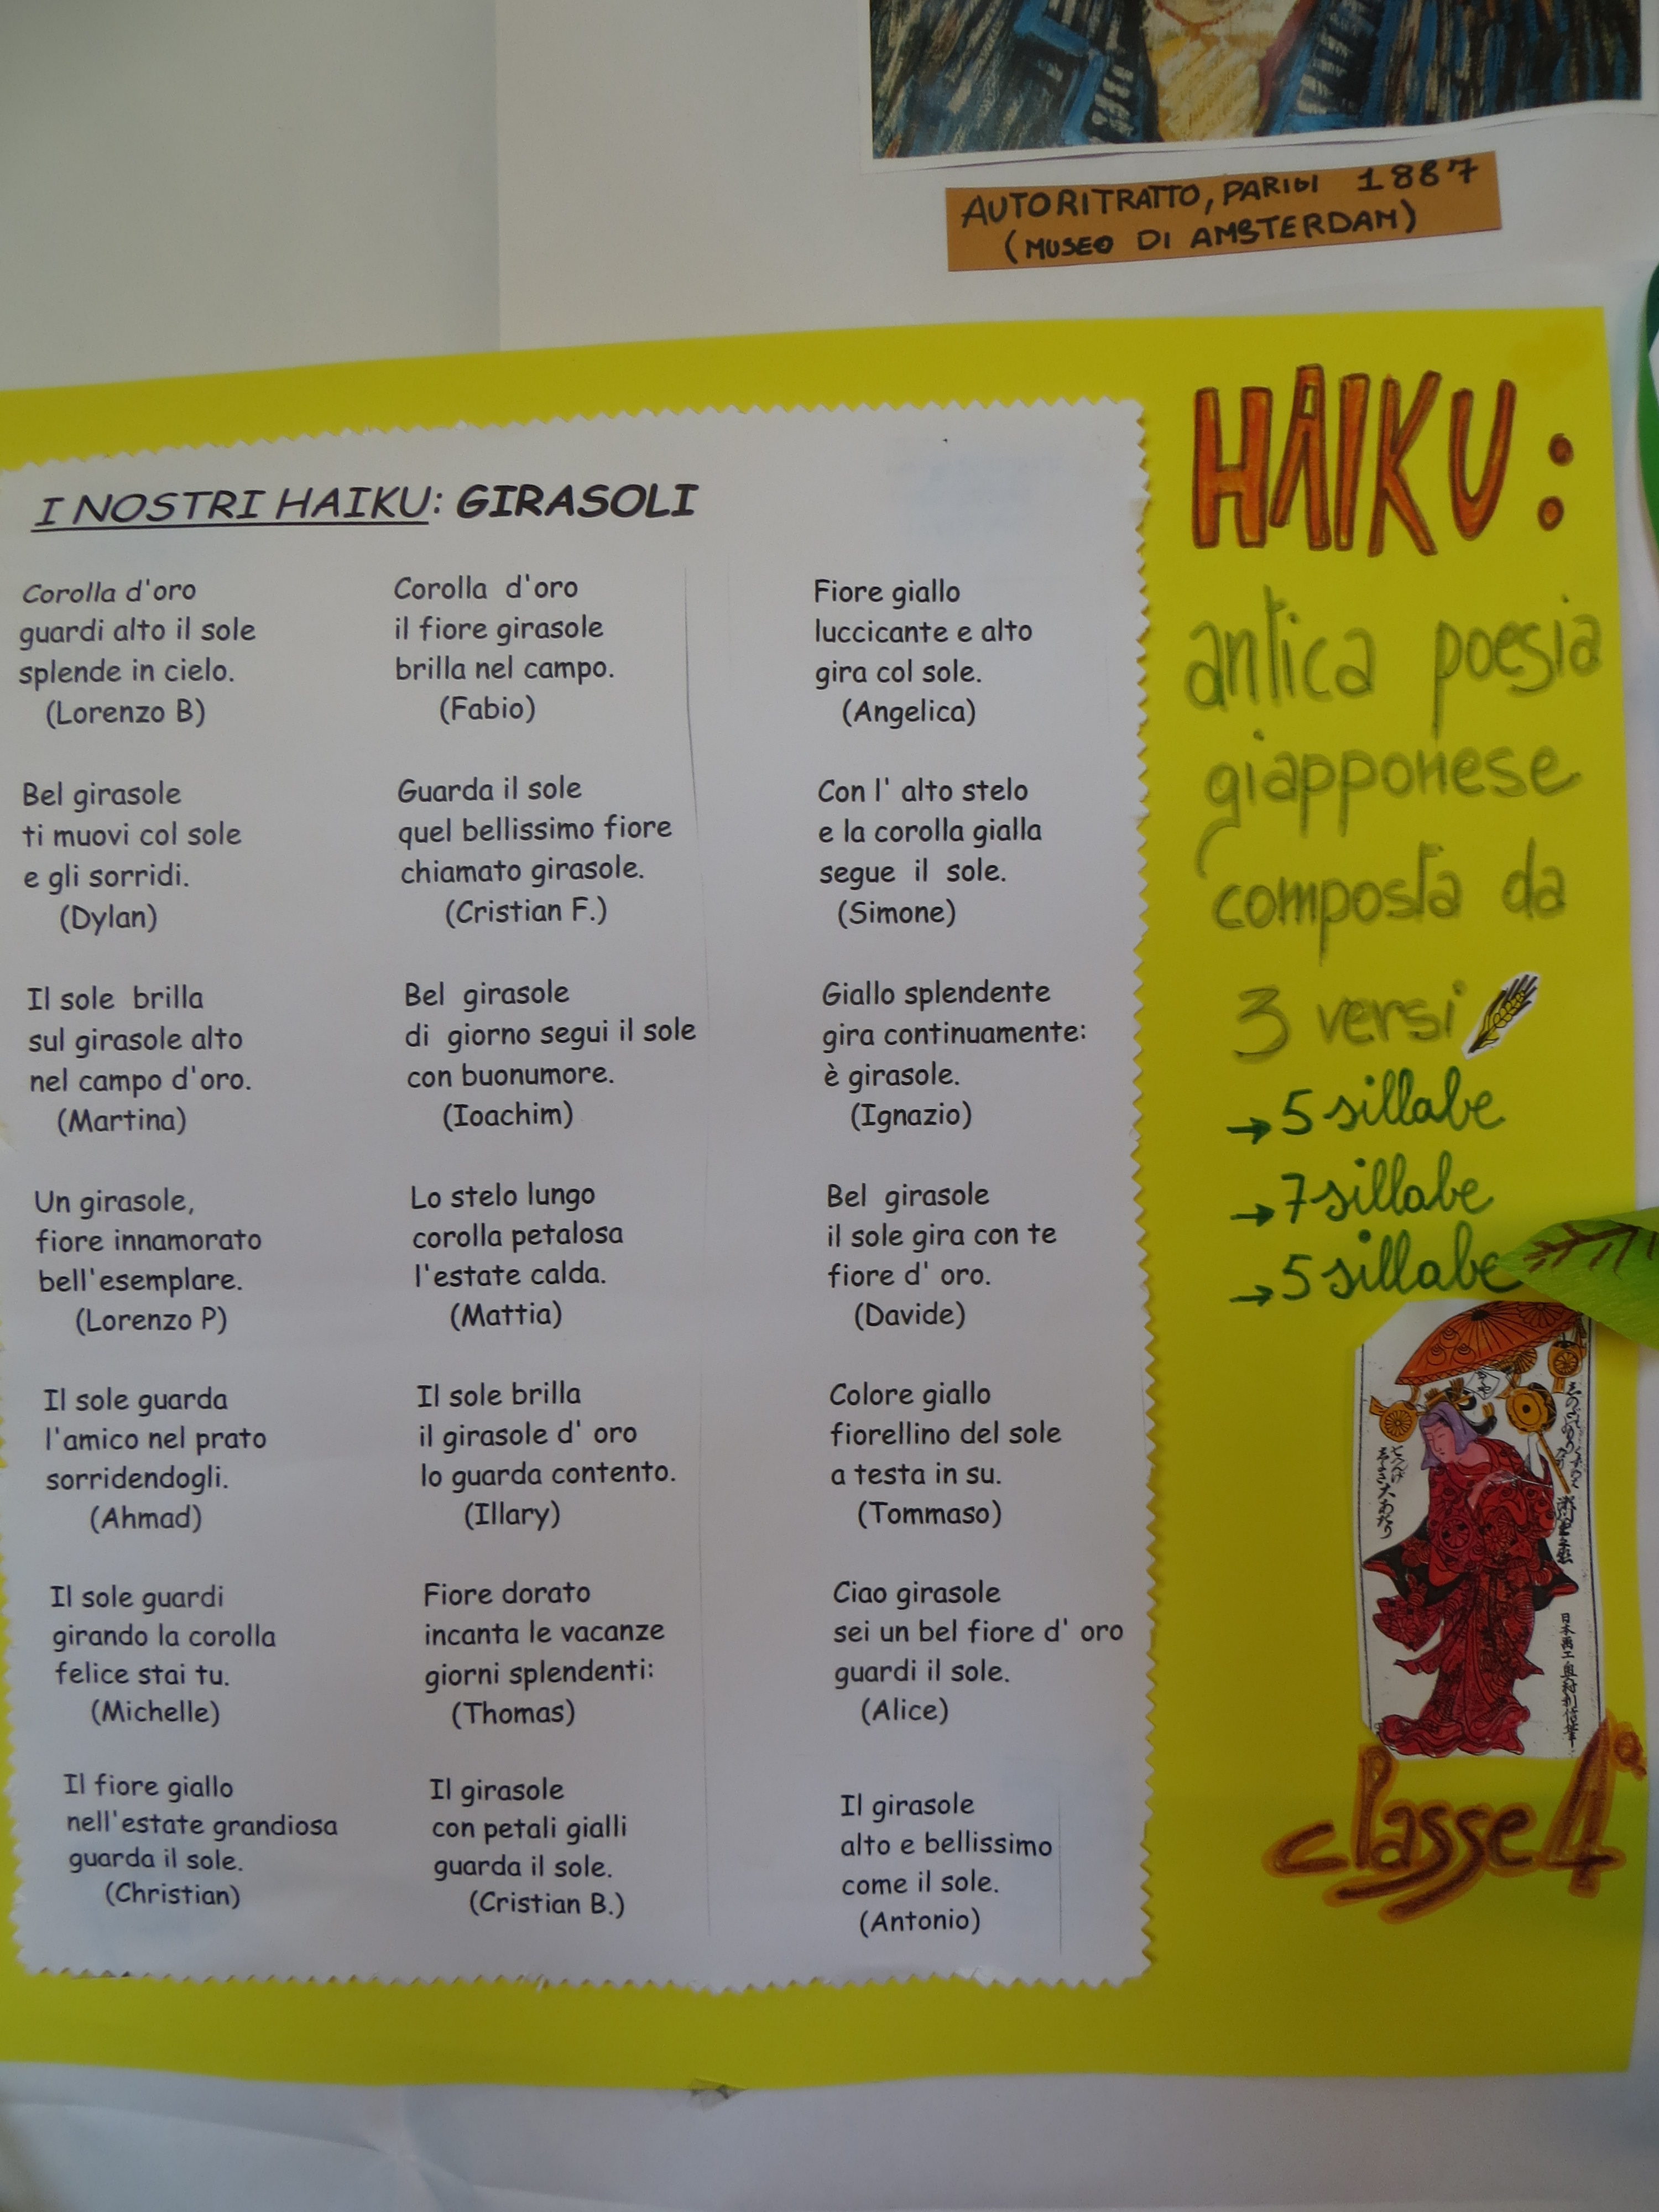 AUTORITRATTO, PARIGI 1887
(MUSEO DI AMSTERDAM)
I NOSTRI HAIKU: GIRASOLI
Corolla d'oro
guardi alto il sole
splende in cielo.
(Lorenzo B)
Bel girasole
ti muovi col sole
e gli sorridi.
(Dylan)
Il sole brilla
sul girasole alto
nel campo d'oro.
(Martina)
Un girasole,
fiore innamorato
bell'esemplare.
(Lorenzo P)
Il sole guarda
l'amico nel prato
sorridendogli.
(Ahmad)
Il sole guardi
girando la corolla
felice stai tu.
(Michelle)
Il fiore giallo
nell'estate grandiosa
guarda il sole.
(Christian)
Corolla d'oro
il fiore girasole
brilla nel campo.
(Fabio)
Guarda il sole
quel bellissimo fiore
chiamato girasole.
(Cristian F.)
Bel girasole
di giorno segui il sole
con buonumore.
(Ioachim)
Lo stelo lungo
corolla petalosa
l'estate calda.
(Mattia)
Il sole brilla
il girasole d' oro
lo guarda contento.
(Illary)
Fiore dorato
incanta le vacanze
giorni splendenti:
(Thomas)
Il girasole
con petali gialli
guarda il sole.
(Cristian B.)
Fiore giallo
luccicante e alto
gira col sole.
(Angelica)
Con l' alto stelo
e la corolla gialla
segue il sole.
(Simone)
Giallo splendente
gira continuamente:
è girasole.
(Ignazio)
Bel girasole
il sole gira con te
fiore d' oro.
(Davide)
Colore giallo
fiorellino del sole
a testa in su.
(Tommaso)
Ciao girasole
sei un bel fiore d' oro
guardi il sole.
(Alice)
Il girasole
alto e bellissimo
come il sole.
(Antonio)
HAIKU:
antica poesia
giapponese
composta da
3 versi
→5 sillabe
→7 sillabe
→5 sillabe
classe 4ª